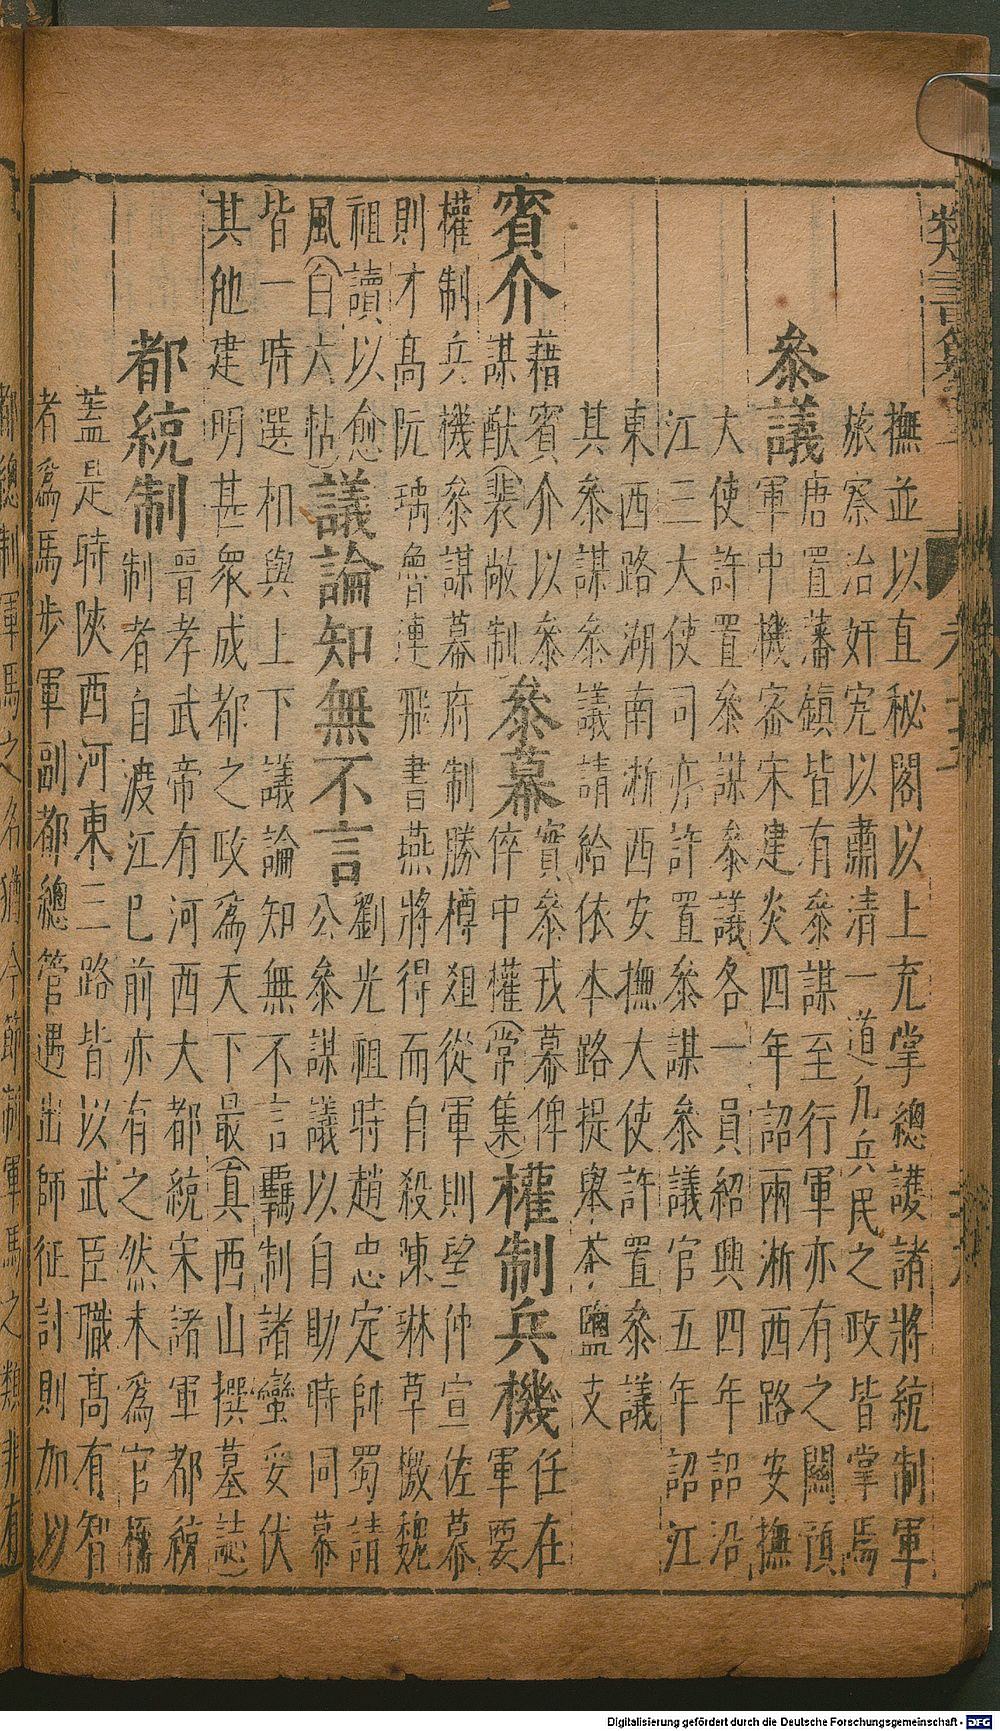 撫並以直秘閣以上充掌總護諸將統制軍
旅察治奸宄以肅清一道凡兵民之政皆掌焉
參議
唐置藩鎮皆有參謀至行軍亦有之關預
軍中機密宋建炎四年詔兩淅西路安撫
大使許置參謀參議各一員紹興四年詔沿
江三大使司亦許置參謀參議官五年詔江
東西路湖南淅西安撫大使許置參議
其參謀參議請給依本路提舉茶鹽支
賓介
藉賓介以參
謀猷(裴敞制
參幕
實參戎幕俾
倅中權(常集)
權制兵機
任在
軍要
權制兵機參謀幕府制勝樽俎從軍則望仲宣佐幕
則才高阮瑀魯連飛書燕將得而自殺陳琳草檄魏
祖讀以愈
風(白六帖)
議論知無不言
劉光祖時趙忠定帥蜀請
公參謀議以自助時同幕
皆一時選相與上下議論知無不言羈制諸蠻妥伏
其他建明甚衆成都之政爲天下最(真西山撰墓誌)
都統制
晋孝武帝有河西大都統宋諸軍都統
制者自渡江已前亦有之然未爲官稱
蓋是時陝西河東三路皆以武臣職高有智
者爲馬步軍副都總管遇出師征討則加以
都總制軍馬之名猶今節制軍馬之類非有
Digitalisierung gefördert durch die Deutsche Forschungsgemeinschaft - DFG